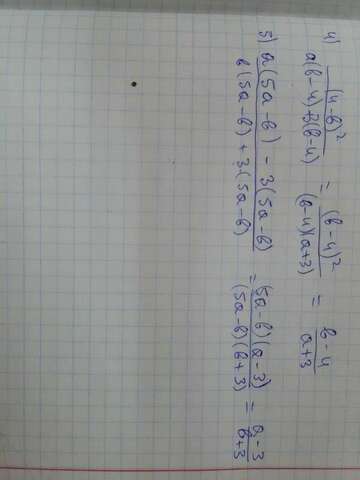 4) (4-b)² / a(b-4)+3(b-4) = (b-4)² / (b-4)(a+3) = b-4 / a+3
5) a(5a-b) - 3(5a-b) / b(5a-b) + 3(5a-b) = (5a-b)(a-3) / (5a-b)(b+3) = a-3 / b+3